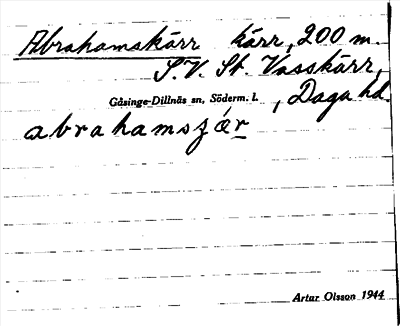 Abrahamskärr kärr, 200 m.
S.V. St. Vasskärr,
Gåsinge-Dillnäs sn, Söderm. l. , Daga hd.
abrahamsʃǽr
Artur Olsson 1944